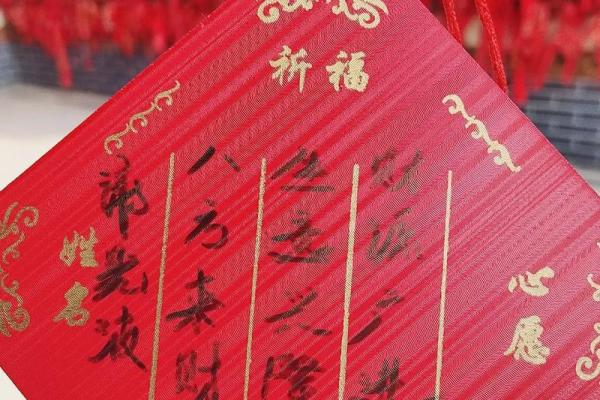 祈福
心愿
财源广进
生意兴隆
八方来财
姓名